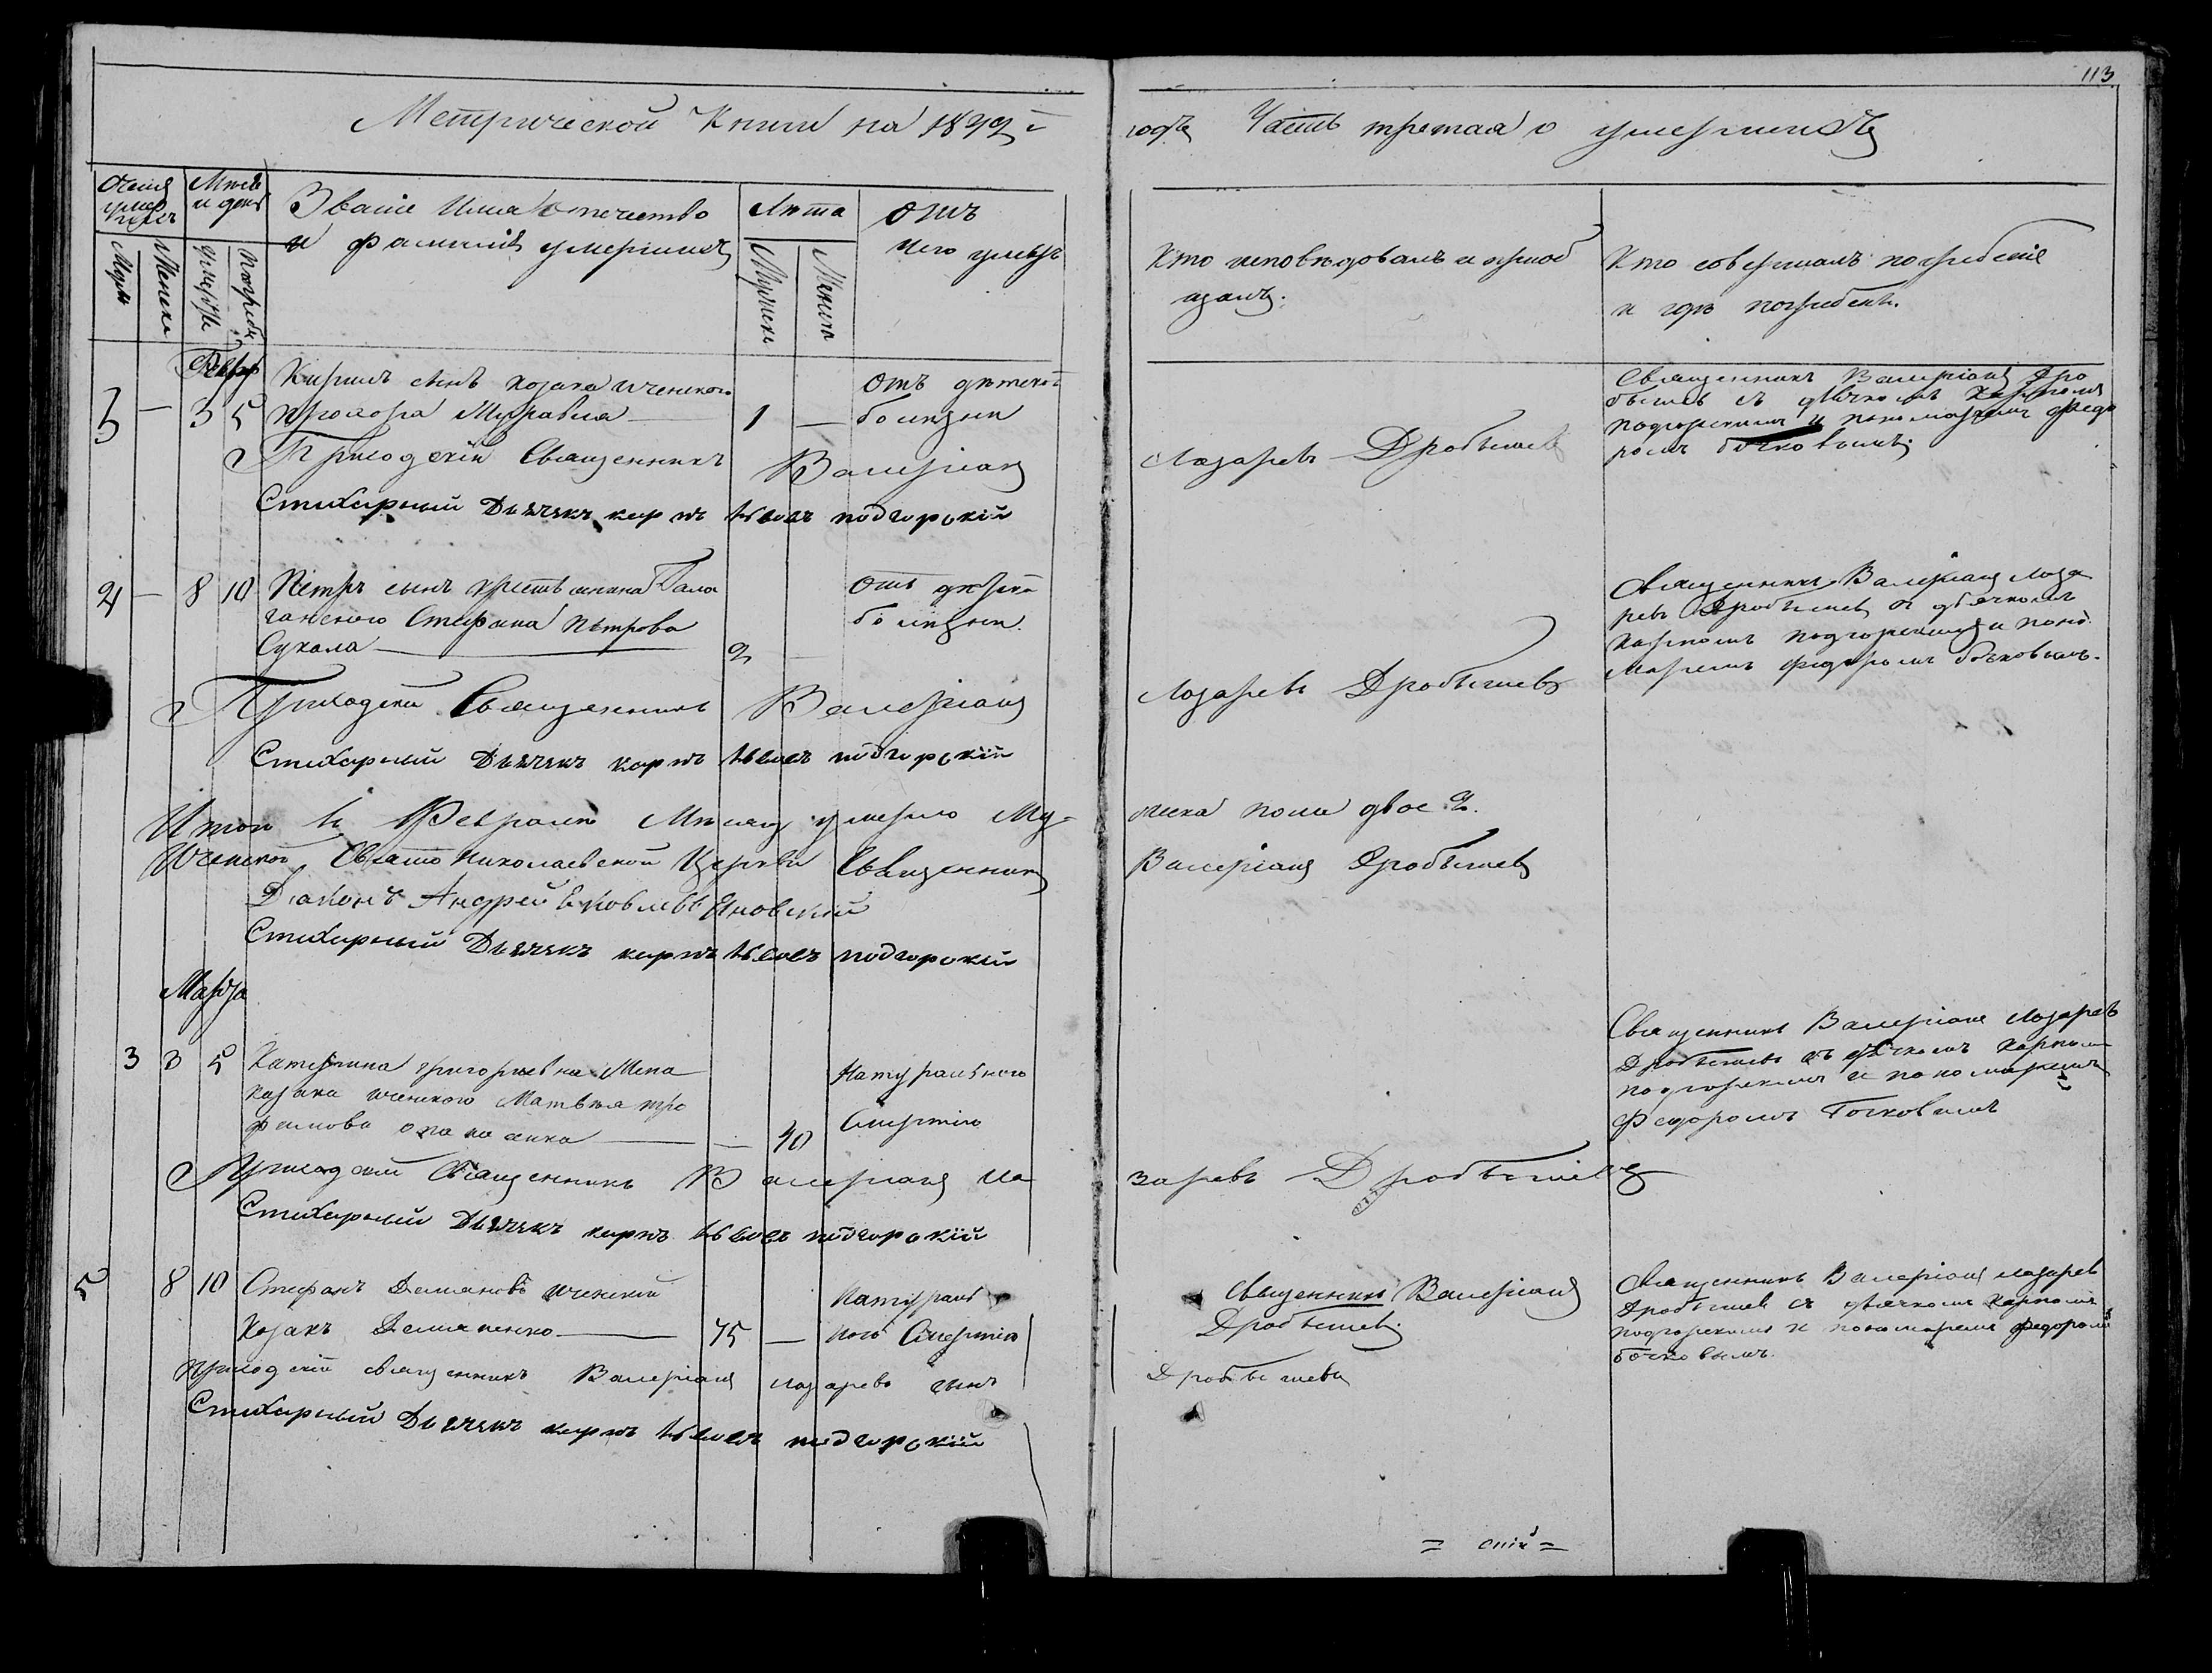 113
Метрической Книги на
годъ Часть третая о умершихъ
Мѣсяцъ и день
Званіе Имя Отчество
и фамилія умершихъ
Лѣта
Отъ
чего умеръ
Кто исповѣдовалъ и приоб
щалъ.
Кто совершалъ погребеніе
и гдѣ погребенъ.
Февр
3 — 3 5 Кирилъ сынъ козака иченского
Прохора Муравля — 1 —
Отъ дѣтской
болѣзни
Священникъ Валеріанъ Дро
бышевъ съ дьячкомъ Карпомъ
подгорскимъ и пономаремъ Федо
ромъ бочковымъ.
Приходскій Священникъ Валеріанъ
Лазаревъ Дробышевъ
Стихарный Дьячекъ карпъ подгорскій
4 — 8 10 Петръ сынъ крестьянина Гала
ганского Стефана Петрова
Сукала — 2
Отъ дѣтской
болѣзни.
Священникъ Валеріанъ Лаза
ревъ Дробышевъ съ дьячкомъ
карпомъ подгорскимъ и поно
маремъ федоромъ бочковымъ.
Приходскій Священникъ Валеріанъ
Лазаревъ Дробышевъ
Стихарный Дьячекъ карпъ подгорскій
Итого въ Февралѣ Мѣсяцѣ умерло Му-
жеска пола двое 2.
Иченской Свято Николаевской Церкви Священникъ
Валеріанъ Дробышевъ
Діаконъ Андрей Яковлевъ Яновскій
Стихарный Дьячекъ карпъ подгорскій
Марта
3 3 5 Катерина григориевна Жена
козака иченского Матвѣя тро
фимова — — 40
Натуральною
Смертію
Священникъ Валеріанъ Лазаревъ
Дробышевъ съ дьячкомъ Карпомъ
подгорскимъ и пономаремъ
Федоромъ Бочковымъ
Приходскій Священникъ Валеріанъ Ла
заревъ Дробышевъ
Стихарный Дьячекъ карпъ подгорскій
5 8 10 Стефанъ Демяновъ иченскій
Козакъ Демяненко — 75 —
Натураль
ною Смертію
Священникъ Валеріанъ
Дробышевъ.
Священникъ Валеріанъ лазаревъ
Дробышевъ съ дьячкомъ карпомъ
подгорскимъ и пономаремъ федоромъ
бочковымъ.
Приходскій священникъ Валеріанъ лазаревъ сынъ
Дробышевъ
Стихарный Дьячекъ карпъ подгорскій